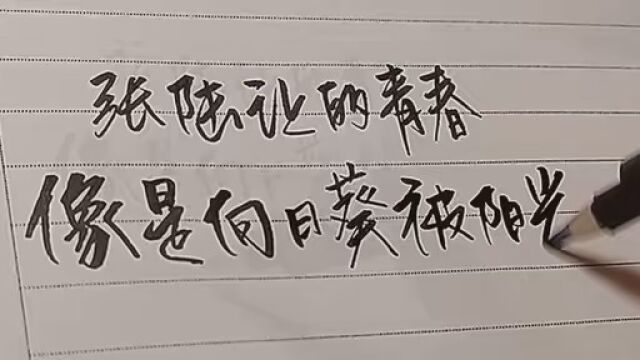 张陆让的青春
像是向日葵被阳光